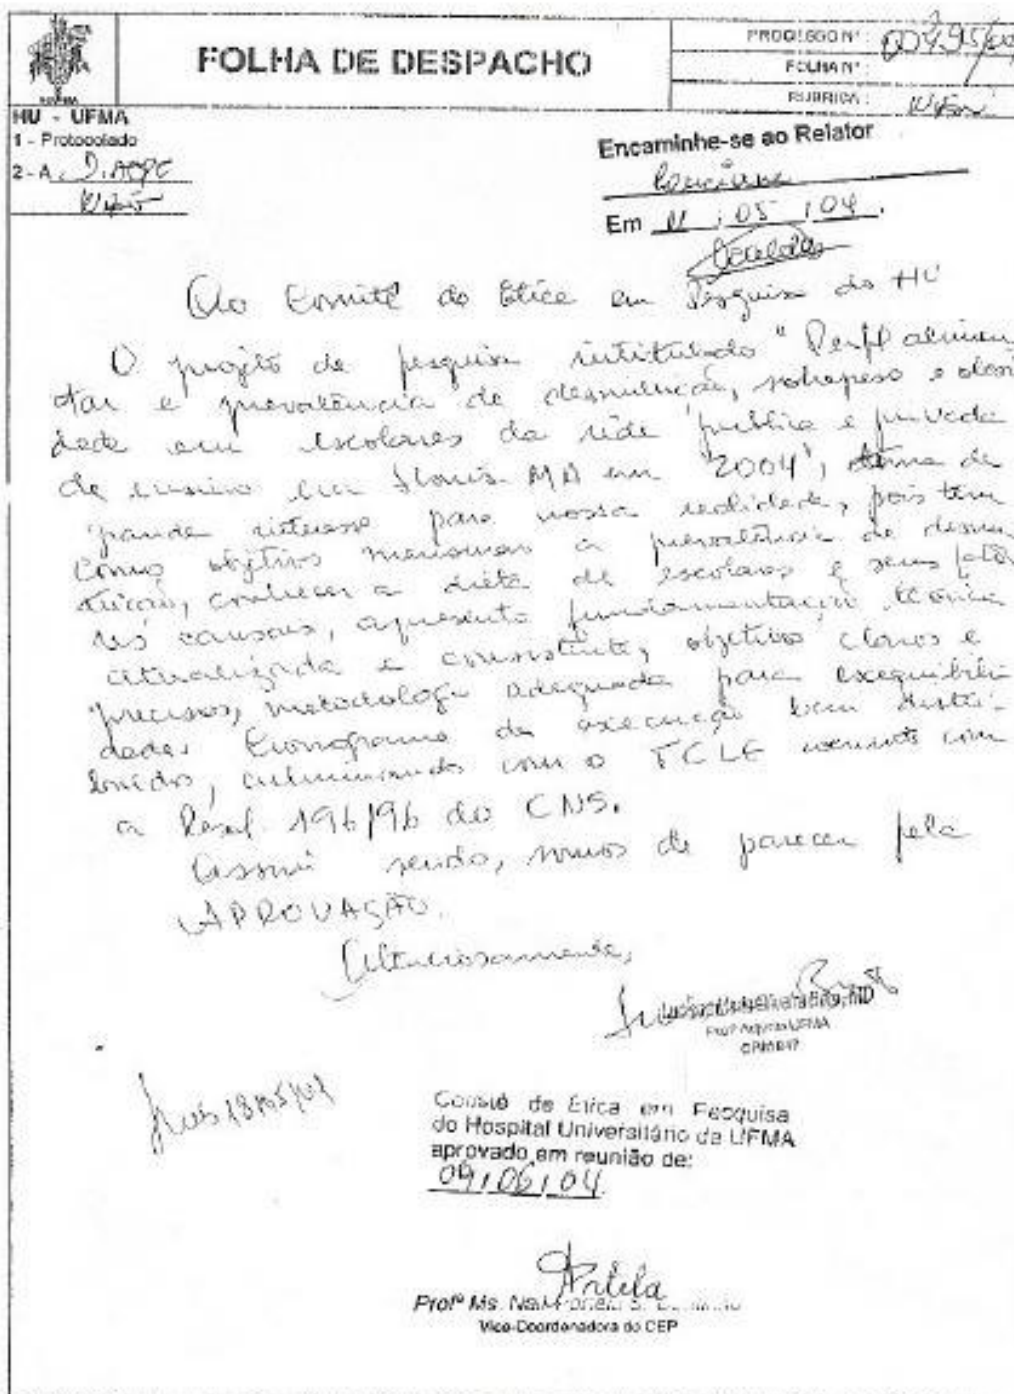 FOLHA DE DESPACHO
PROCESSO Nº:
FOLHA Nº:
RUBRICA:
HU - UFMA
1 - Protocolado
2 - A
Encaminhe-se ao Relator
Luciane
Em 11 / 05 / 04.
Ao Comitê de Ética em Pesquisa do HU
O projeto de pesquisa intitulado "Perfil alimen
tar e prevalência de desnutrição, sobrepeso e obesi
dade em escolares da rede pública e privada
de ensino em São Luís-MA em 2004", tema de
grande interesse para nossa realidade, pois tem
como objetivo mensurar a prevalência de desnu
trição, conhecer a dieta de escolares e seus fato
res causais, apresenta fundamentação teórica
atualizada e consistente, objetivos claros e
precisos, metodologia adequada para exequibili
dade. Cronograma de execução bem distri-
buído, culminando com o TCLE coerente com
a Resol. 196/96 do CNS.
Assim sendo, somos de parecer pela
APROVAÇÃO.
Atenciosamente,
Profª Adjunto UFMA
18/05/04
Comitê de Ética em Pesquisa
do Hospital Universitário da UFMA
aprovado em reunião de:
09 / 06 / 04
Profª Ms.
Vice-Coordenadora do CEP